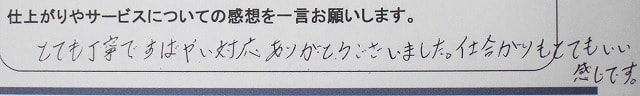 仕上がりやサービスについての感想を一言お願いします。
とても丁寧ですばやい対応ありがとうございました。仕合がりもとてもいい
感じです。